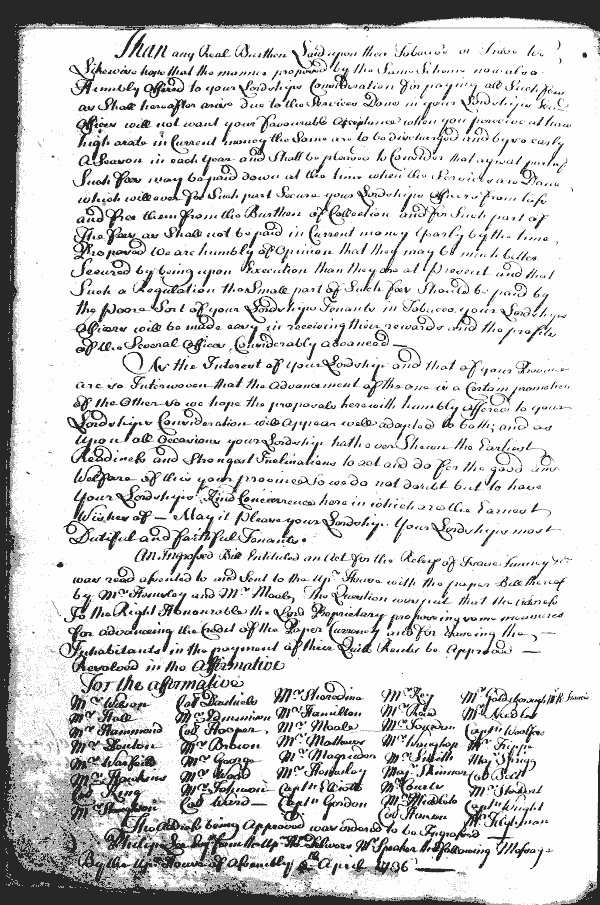 Than any Real Burthen Laid upon their Tobacco or Trade We
Likewise hope that the manner proposed by the Same Scheme now also
Humbly Offered to your Lordships Consideration for paying all Such fees
as Shall hereafter arise due to the Services Done in your Lordships
Officers will not want your Favourable Acceptance when you perceive at how
high a rate in Current money the Same are to be discharged and by so early
a Season in each year and Shall be pleased to Consider that a great part of
Such Fees may be paid down at the time when the Services are Done
which will ever for Such part Secure your Lordships Officers from Loss
and free them from the Burthen of Collection and for Such part of
The Fees as Shall not be paid in Current money Yearly by the time
Proposed We are humbly of Opinion that they may be much better
Secured by being upon Execution than they are at Present and that
Such a Regulation the Small part of Such Fees Should be paid by
the Poorer Sort of your Lordships Tenants in Tobacco your Lordships
Officers will be made easy in receiving their rewards and the profits
of the Several Offices Considerably advanced —
As the Interest of your Lordship and that of your Province
are so Interwoven that the advancement of the one is a Certain promotion
of the Other so we hope the proposals herewith humbly offered to your
Lordships Consideration will Appear well adapted to both; and as
Upon all Occasions your Lordship hath ever Shewn the Earliest
Readiness and Strongest Inclinations to act and do for the good and
Welfare of this your province so we do not doubt but to have
your Lordships Kind Concurrence herein which are the Earnest
Wishes of — May it Please your Lordship Your Lordships most
Dutiful and faithful Tenants.
An Ingrossed Bill Entituled an Act for the Relief of Isaac
was read assented to and Sent to the Upr. House with the paper Bill thereof
by Mr. Hemsley and Mr. Moale, The Question was put that the Address
To the Right Honourable the Lord Proprietary proposing some measures
for advancing the Credit of the Paper Currency and for the
Inhabitants in the payment of their Quit Rents be Approved —
Resolved in the Affirmative
For the affirmative
Mr. Wilson Mr. Sheredine Mr. Key Mr. Goldsborough
Mr. Hall Mr. Hamilton Mr. Needles
Mr. Hammond Col. Hooper, Mr. Moale Captn. Wolfe
Mr. Brown Mr. Mathews Mr. Vaughop
Mr. Warfield Mr. George Mr. Magruder Mr. Smith
Mr. Hawkins Mr. Wood Mr. Hemsley Maj. Skinner Col. Bell
Col. King Mr. Johnson Captn. Elliott Mr. Courts
Col. Ward — Captn. Gordon Mr. Middleton Captn. Wright
The Address being Approved was ordered to be Ingrossed
from the Upr. Ho. delivers Mr. Speaker the following Message
By the Upr. House of Assembly April 1736 —